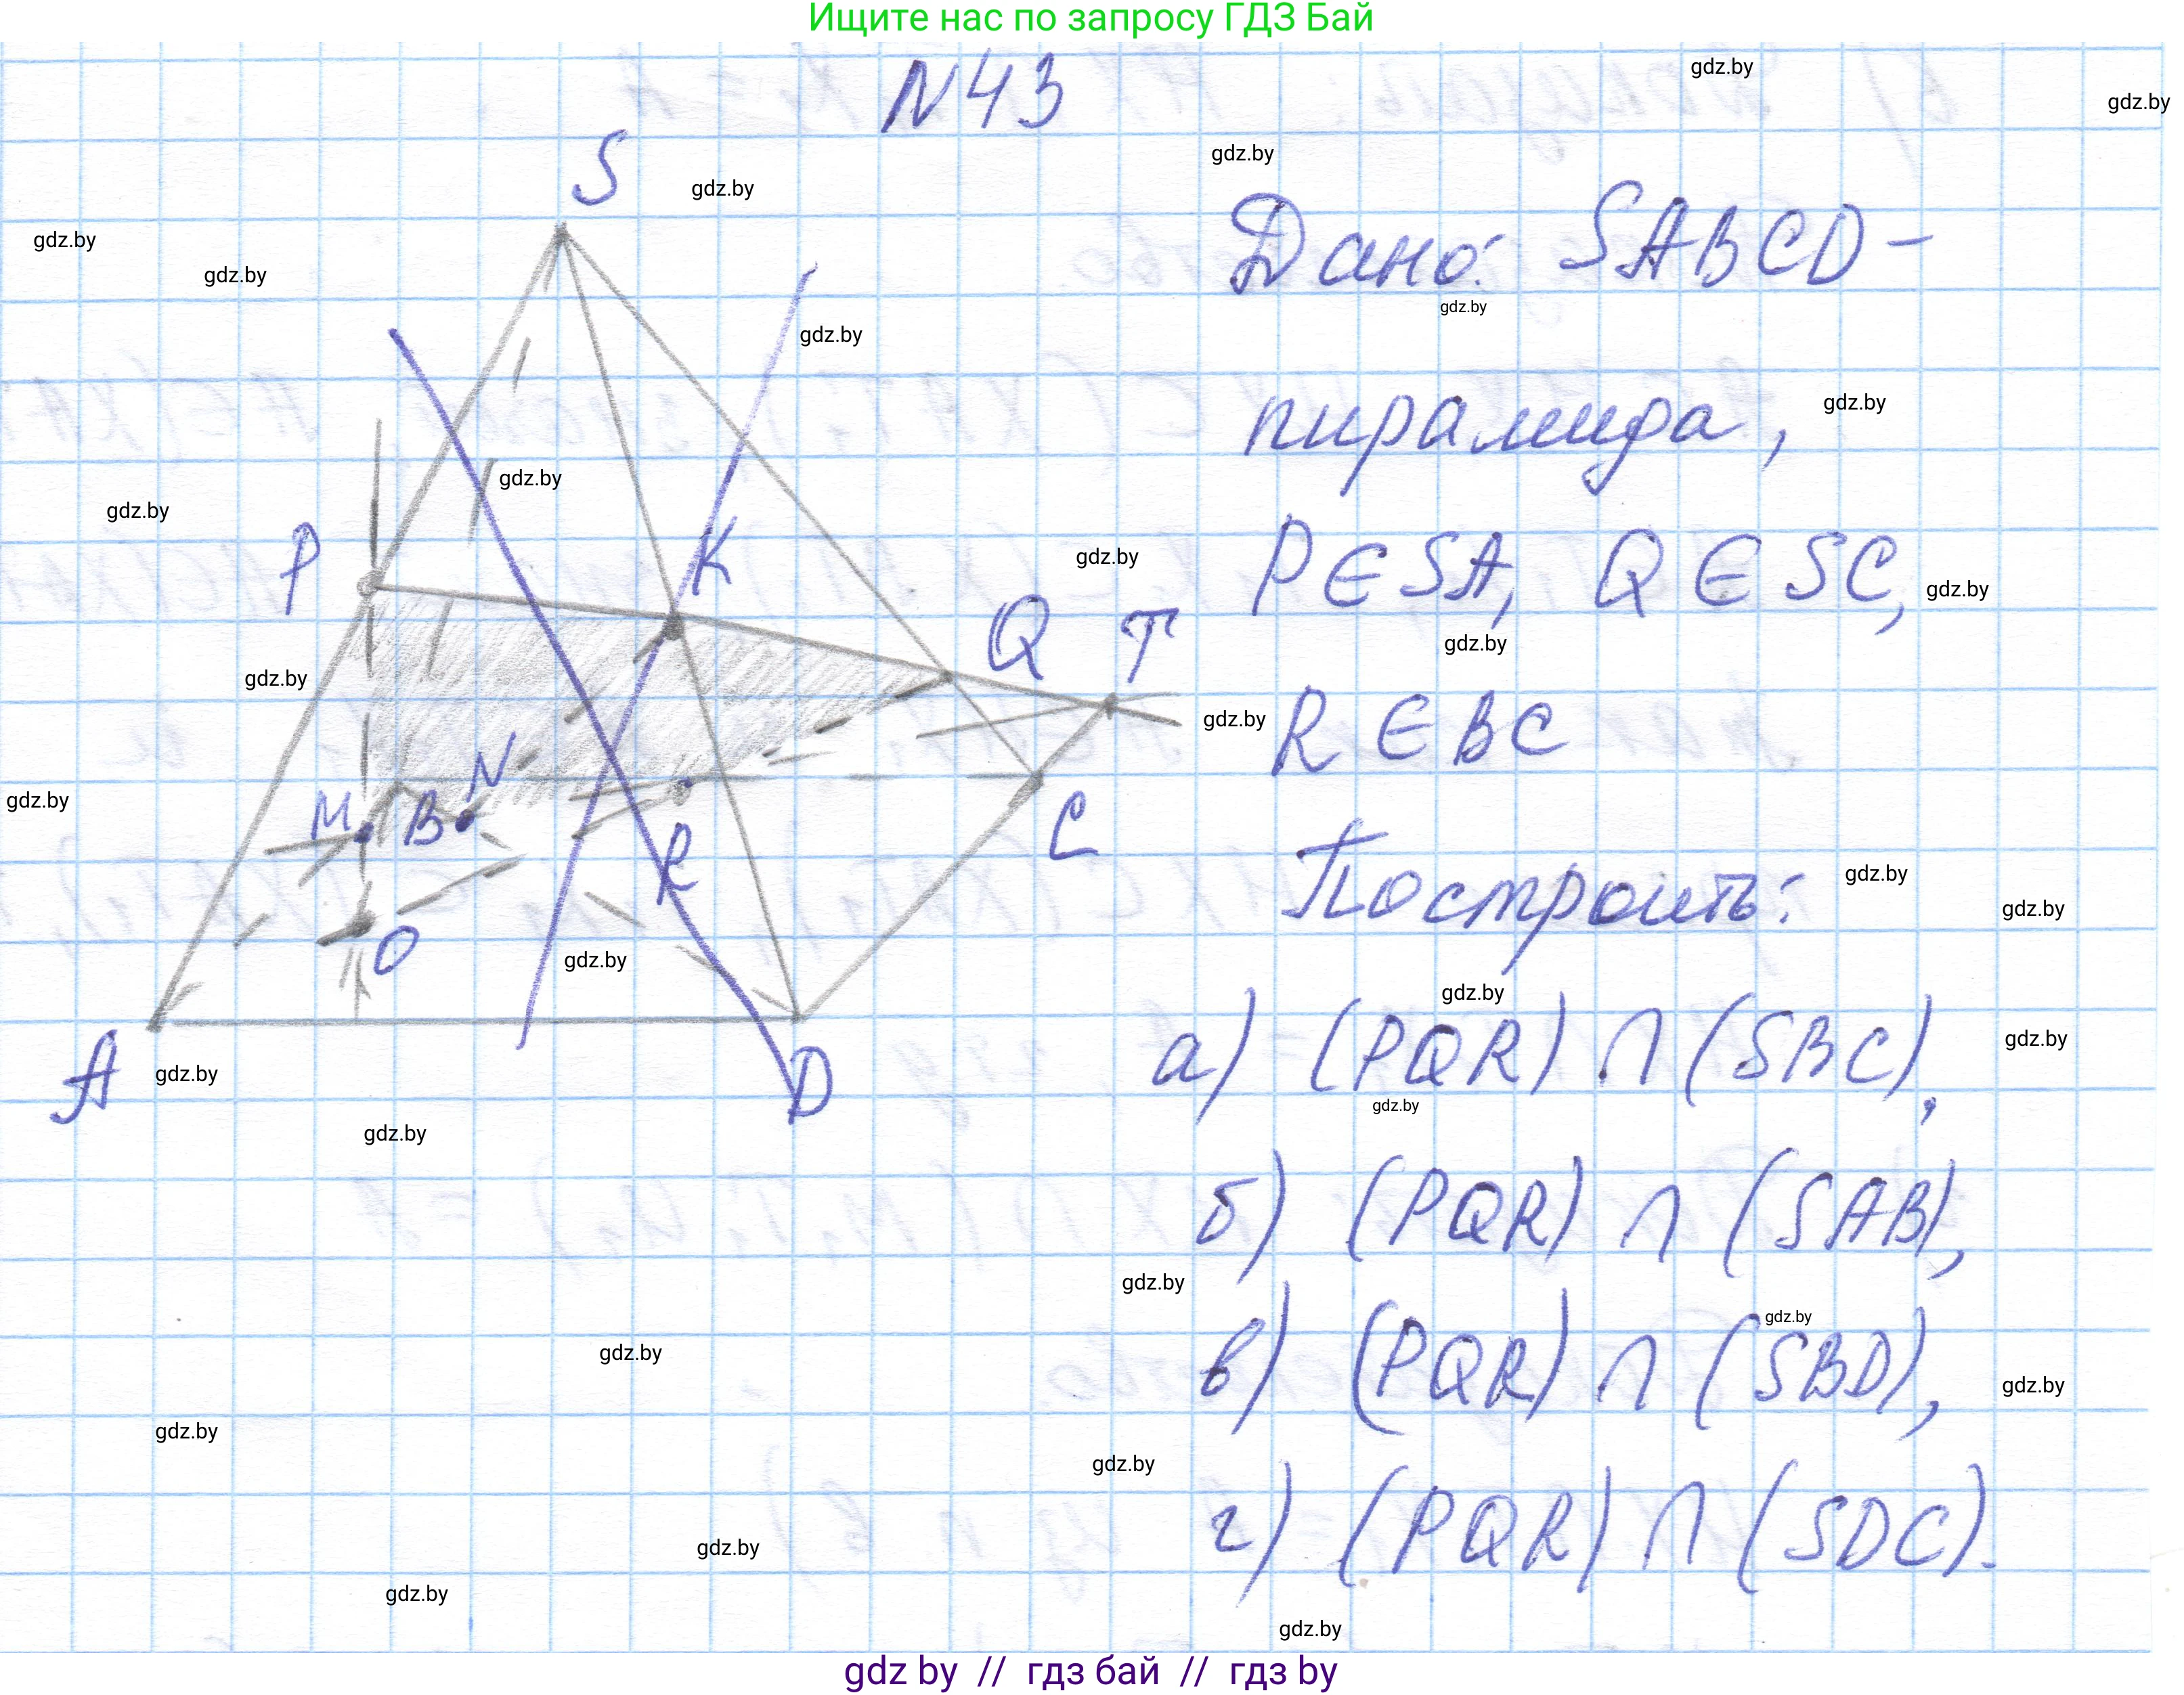 Ищите нас по запросу ГДЗ Бай
N43
gdz.by
gdz.by
gdz.by
gdz.by
S
Дано: SABCD-
gdz.by
gdz.by
gdz.by
gdz.by
пирамида,
gdz.by
gdz.by
gdz.by
P
K
gdz.by
P∈SA, Q∈SC,
gdz.by
Q
T
gdz.by
gdz.by
gdz.by
R∈BC
N
gdz.by
M
B
C
R
Построить:
gdz.by
gdz.by
O
gdz.by
gdz.by
A
gdz.by
D
а) (PQR)∩(SBC),
gdz.by
gdz.by
gdz.by
б) (PQR)∩(SAB),
gdz.by
gdz.by
gdz.by
в) (PQR)∩(SBD),
gdz.by
gdz.by
gdz.by
г) (PQR)∩(SDC).
gdz.by
gdz.by
gdz.by
gdz by // гдз бай // гдз by